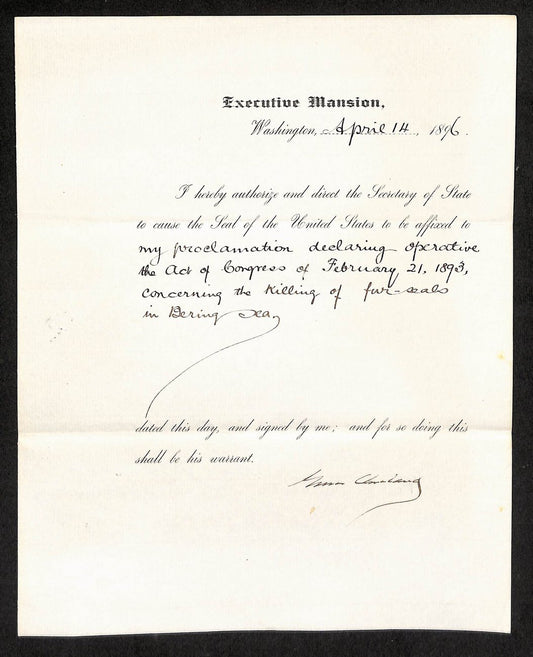 Executive Mansion,
Washington, April 14, 1896.
I hereby authorize and direct the Secretary of State
to cause the Seal of the United States to be affixed to
my proclamation declaring operative
the Act of Congress of February 21, 1893,
concerning the killing of fur-seals
in Bering Sea,
dated this day, and signed by me; and for so doing this
shall be his warrant.
Grover Cleveland